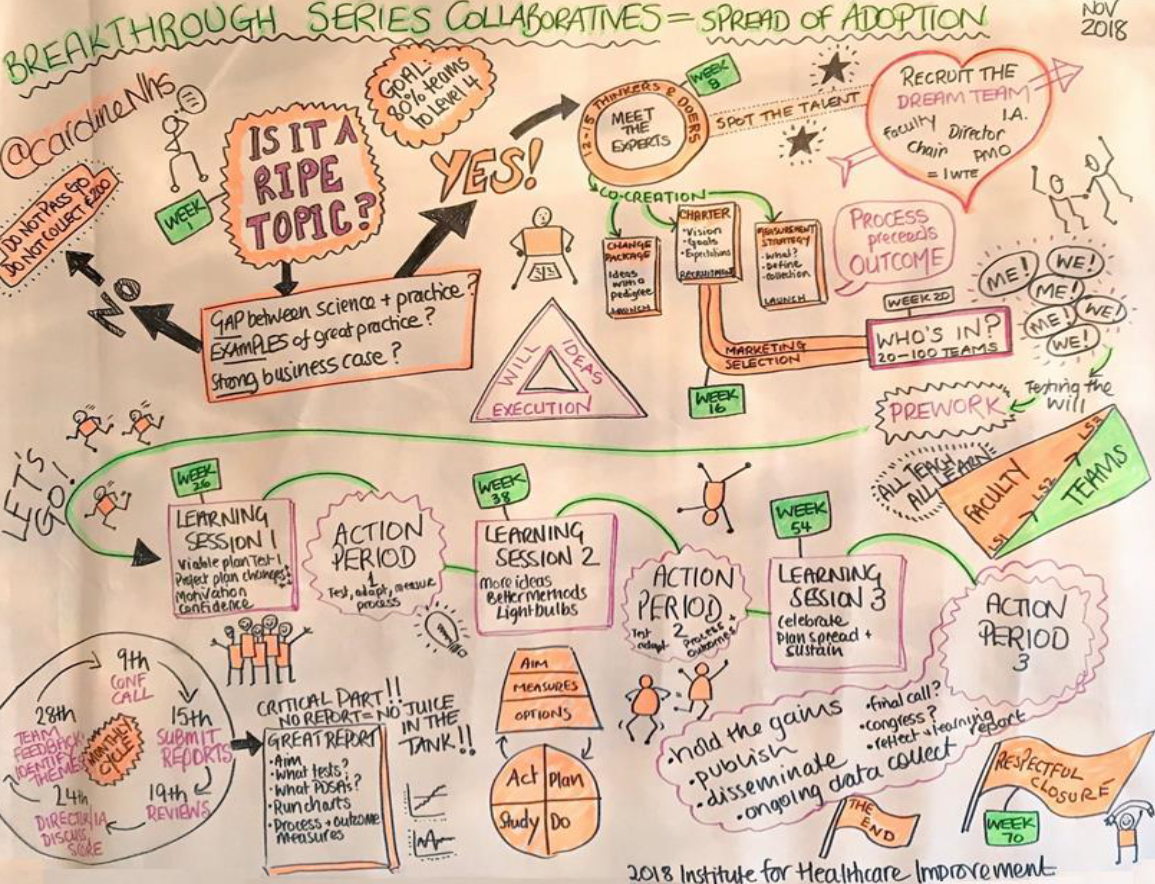 BREAKTHROUGH SERIES COLLABORATIVES = SPREAD OF ADOPTION
NOV
2018
@carolineNHS
GOAL:
80% teams
to level 4
IS IT A
RIPE
TOPIC?
WEEK
1
DO NOT PASS GO
DO NOT COLLECT £200
NO
YES!
GAP between science + practice?
EXAMPLES of great practice?
Strong business case?
WEEK
8
12-15 THINKERS & DOERS
MEET
THE
EXPERTS
SPOT THE TALENT
RECRUIT THE
DREAM TEAM
I.A.
Faculty Director
Chair PMO
= 1 WTE
CO-CREATION
CHANGE
PACKAGE
Ideas
with a
pedigree
LAUNCH
CHARTER
• Vision
• Goals
• Expectations
RECRUITMENT
MEASUREMENT
STRATEGY
• What?
• Define
• Collection
LAUNCH
PROCESS
preceeds
OUTCOME
WILL
IDEAS
EXECUTION
MARKETING
SELECTION
WEEK
16
WEEK 20
WHO'S IN?
20-100 TEAMS
ME!
WE!
ME!
ME!
WE!
WE!
Testing the
will
PREWORK
ALL TEACH
ALL LEARN
FACULTY
TEAMS
LS1
LS2
LS3
LET'S
GO!
WEEK
26
LEARNING
SESSION 1
Viable plan Test-1
Project plan changes
Motivation
Confidence
ACTION
PERIOD
1
Test, adapt, measure
process
WEEK
38
LEARNING
SESSION 2
More ideas
Better methods
Lightbulbs
ACTION
PERIOD
2
Test
adapt
Process +
Outcomes
WEEK
54
LEARNING
SESSION 3
Celebrate
Plan spread +
Sustain
ACTION
PERIOD
3
MONTHLY
CYCLE
9th
CONF
CALL
15th
SUBMIT
REPORTS
19th
REVIEWS
24th
DIRECTOR/IA
DISCUSS,
SCORE
28th
TEAM
FEEDBACK
IDENTIFY
THEMES
CRITICAL PART!!
NO REPORT = NO JUICE
IN THE
TANK!!
GREAT REPORT
• Aim
• What tests?
• What PDSAs?
• Run charts
• Process + outcome
measures
AIM
MEASURES
OPTIONS
Act
Plan
Study
Do
• hold the gains
• publish
• disseminate
• ongoing data collect
• final call?
• congress?
• reflect + learning report
THE
END
RESPECTFUL
CLOSURE
WEEK
70
2018 Institute for Healthcare Improvement